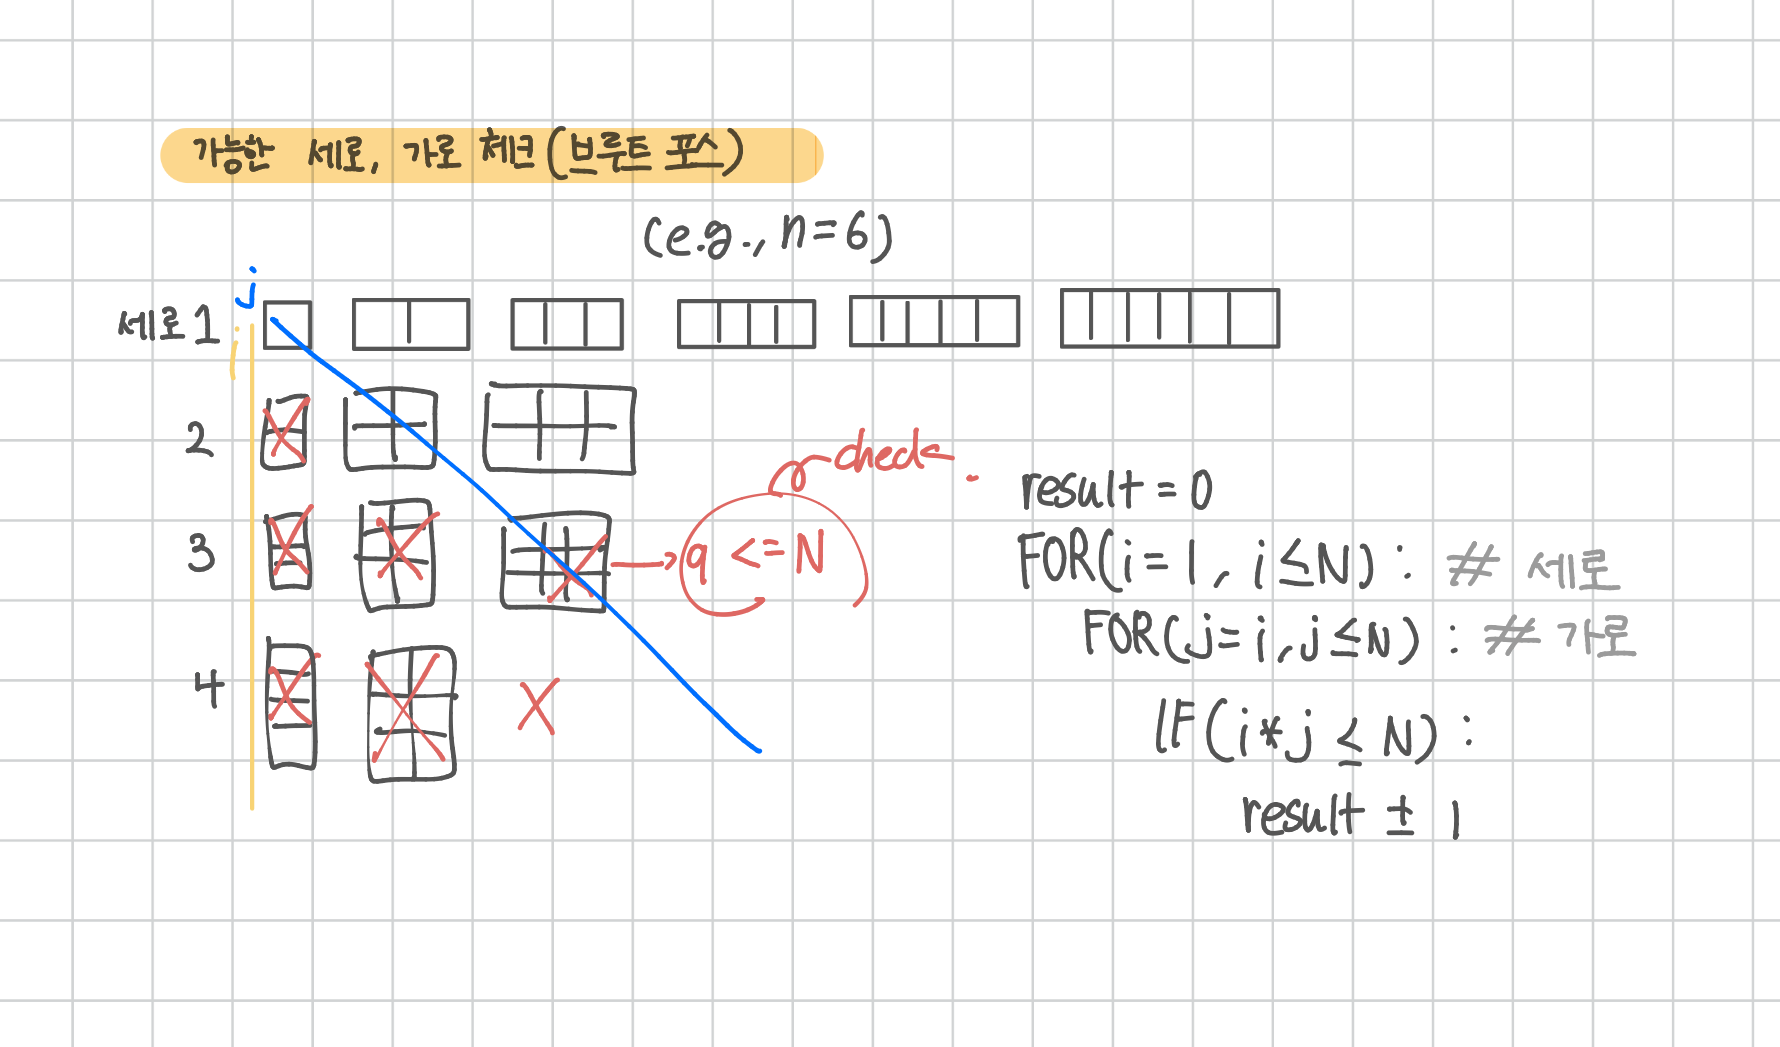 가능한 세로, 가로 체크(브루트 포스)
(e.g., n=6)
j
세로 1
i
2
check
3
9 <=N
4
X
result = 0
FOR(i = 1, i ≤N) : # 세로
FOR(j= i, j ≤N) : # 가로
IF(i*j ≤ N) :
result ± 1